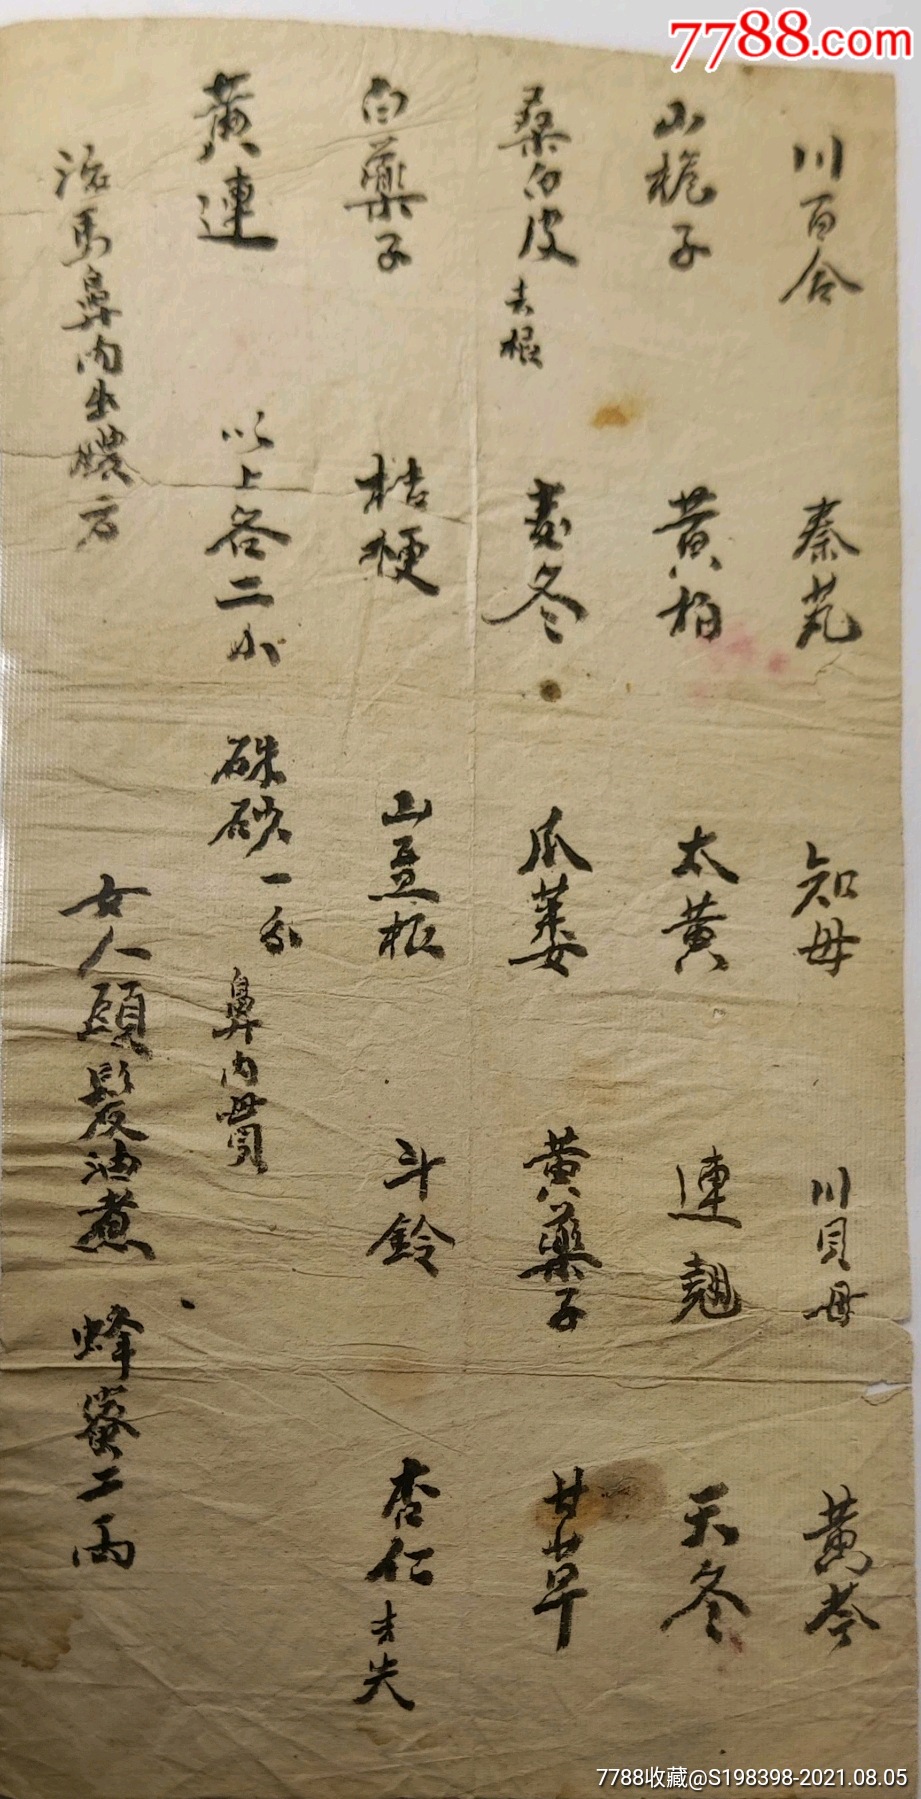 7788.com
川百合 秦艽 知母 川貝母 黄芩
山栀子 黄柏 太黄 連翹 天冬
桑白皮 去根 麦冬 瓜蒌 黄藥子 甘草
白藥子 桔梗 山豆根 斗鈴 杏仁 去尖
黄連 以上各二 硃砂一 鼻内貫
馬鼻内出膿方 女人頭髮油煮 蜂蜜二両
7788收藏@S198398-2021.08.05